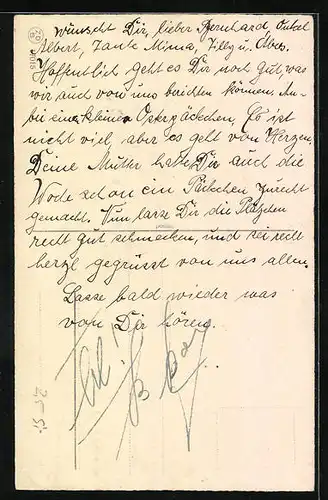 wünscht Dir, lieber Bernhard Onkel
Albert, Tante Minna, Tilly u.
Hoffentlich geht es Dir noch gut, was
wir auch von uns berichten können. An-
bei ein kleines Osterpäckchen. Es ist
nicht viel, aber es geht von Herzen.
Deine Mutter hatte Dir auch die
Woche schon ein Päckchen zurecht
gemacht. Nun lasse Dir die Plätzchen
recht gut schmecken, und sei recht
herzl gegrüsst von uns allen.
Lasse bald wieder was
von Dir hören.